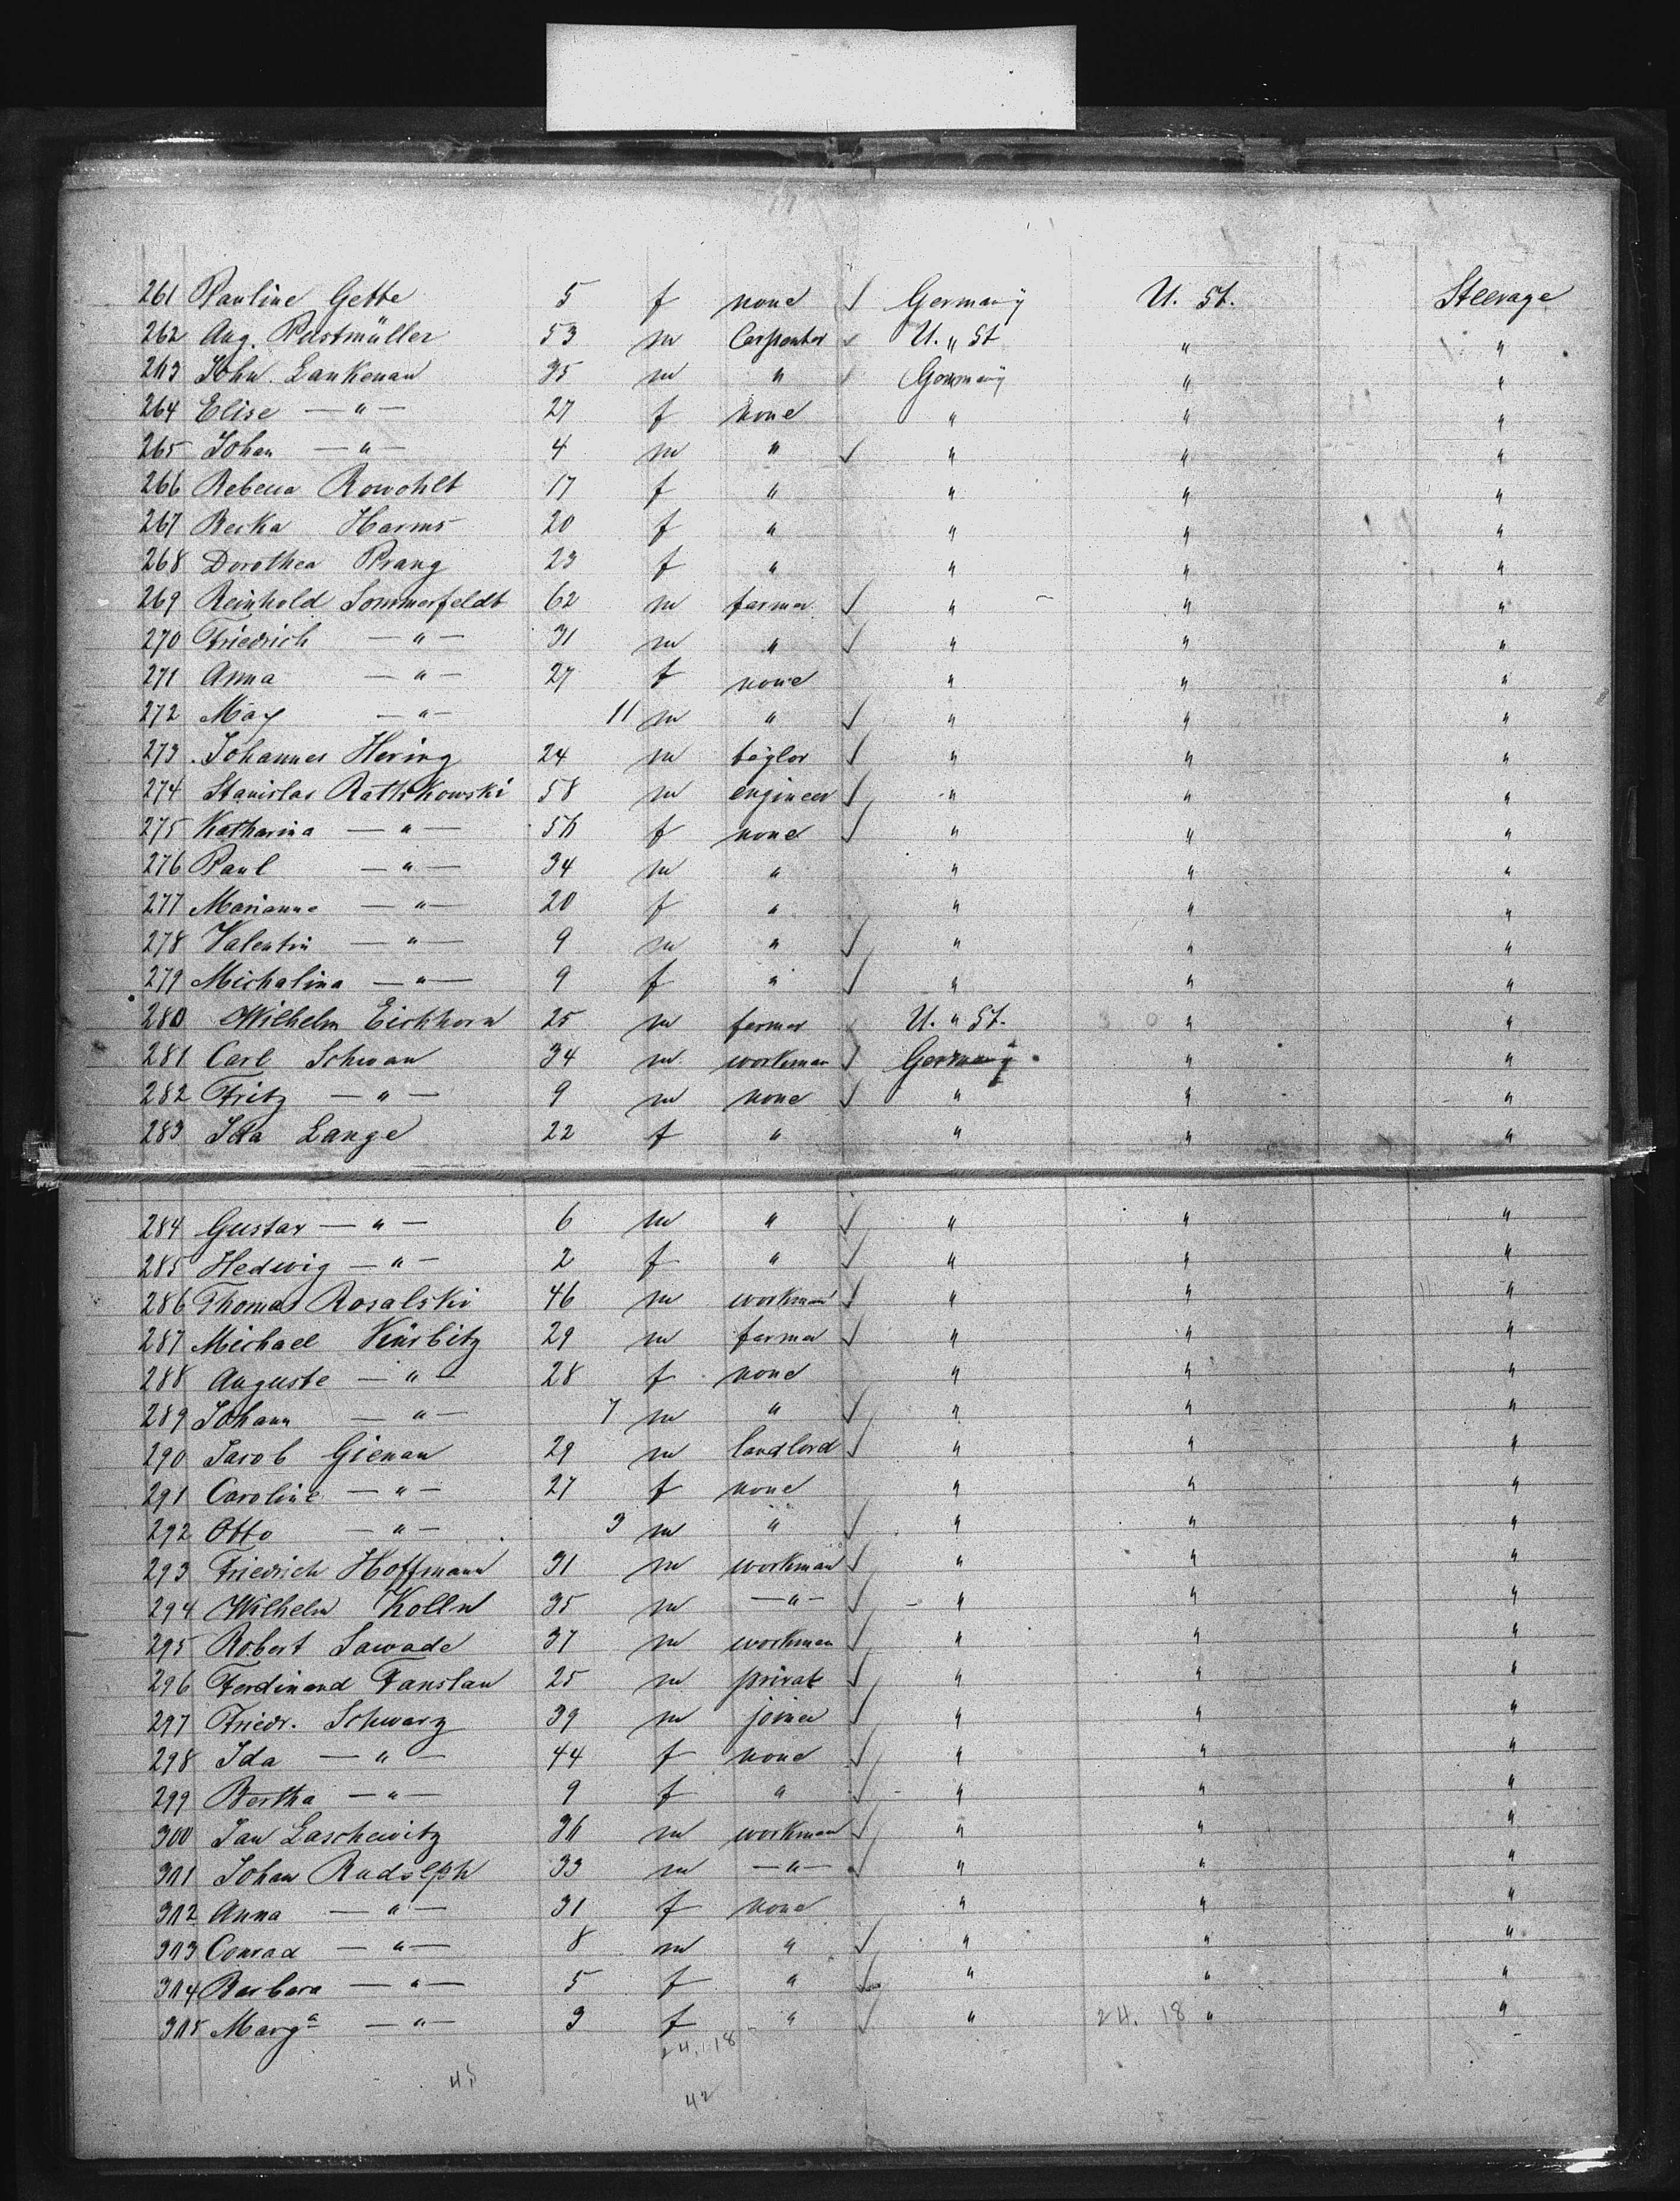 261 Pauline Gette 5 f none √ Germany U. St. Steerage
262 Aug. Pustmüller 53 m Carpenter √ U. " St " "
263 John. Lankenau 35 m " √ Germany " "
264 Elise — " — 27 f none " " "
265 Johan — " — 4 m " √ " " "
266 Rebecca Rowohlt 17 f " " " "
267 Becka Harms 20 f " " " "
268 Dorothea Prang 23 f " " " "
269 Reinhold Sommerfeldt 62 m farmer √ " " "
270 Friedrich — " — 31 m " √ " " "
271 Anna — " — 27 f none " " "
272 Max — " — 11 m " √ " " "
273 Johannes Hering 24 m √ " " "
274 Stanislas Rathkowski 58 m engineer √ " " "
275 Katharina — " — 56 f none √ " " "
276 Paul — " — 34 m " " " "
277 Marianne — " — 20 f " " " "
278 Valentin — " — 9 m " √ " " "
279 Michalina — " — 9 f " √ " " "
280 Wilhelm Eickhorn 25 m farmer √ U. " St. " "
281 Carl Schwan 34 m workman √ Germany " "
282 Fritz — " — 9 m none √ " " "
283 Ida Lange 22 f " " " "
284 Gustav — " — 6 m " √ " " "
285 Hedwig — " — 2 f " √ " " "
286 Thomas Rosalski 46 m workman √ " " "
287 Michael Kürbitz 29 m farmer √ " " "
288 Auguste — " — 28 f none " " "
289 Johann — " — 7 m " √ " " "
290 Jacob Gienau 29 m landlord √ " " "
291 Caroline — " — 27 f none " " "
292 Otto — " — 3 m " √ " " "
293 Friedrich Hoffmann 31 m workman √ " " "
294 Wilhelm Kolln 35 m — " — √ " " "
295 Robert Sawade 37 m workman √ " " "
296 Ferdinand Fanslau 25 m private √ " " "
297 Friedr. Schwarz 39 m joiner √ " " "
298 Ida — " — 44 f none √ " " "
299 Bertha — " — 9 f " √ " " "
300 Jan Laschewitz 36 m workman √ " " "
301 Johan Rudolph 33 m — " — √ " " "
302 Anna — " — 31 f none " " "
303 Conrad — " — 8 m " √ " " "
304 Barbara — " — 5 f " √ " " "
305 Marg.a — " — 3 f " √ " 24. 18 " "
24. 18
45
42